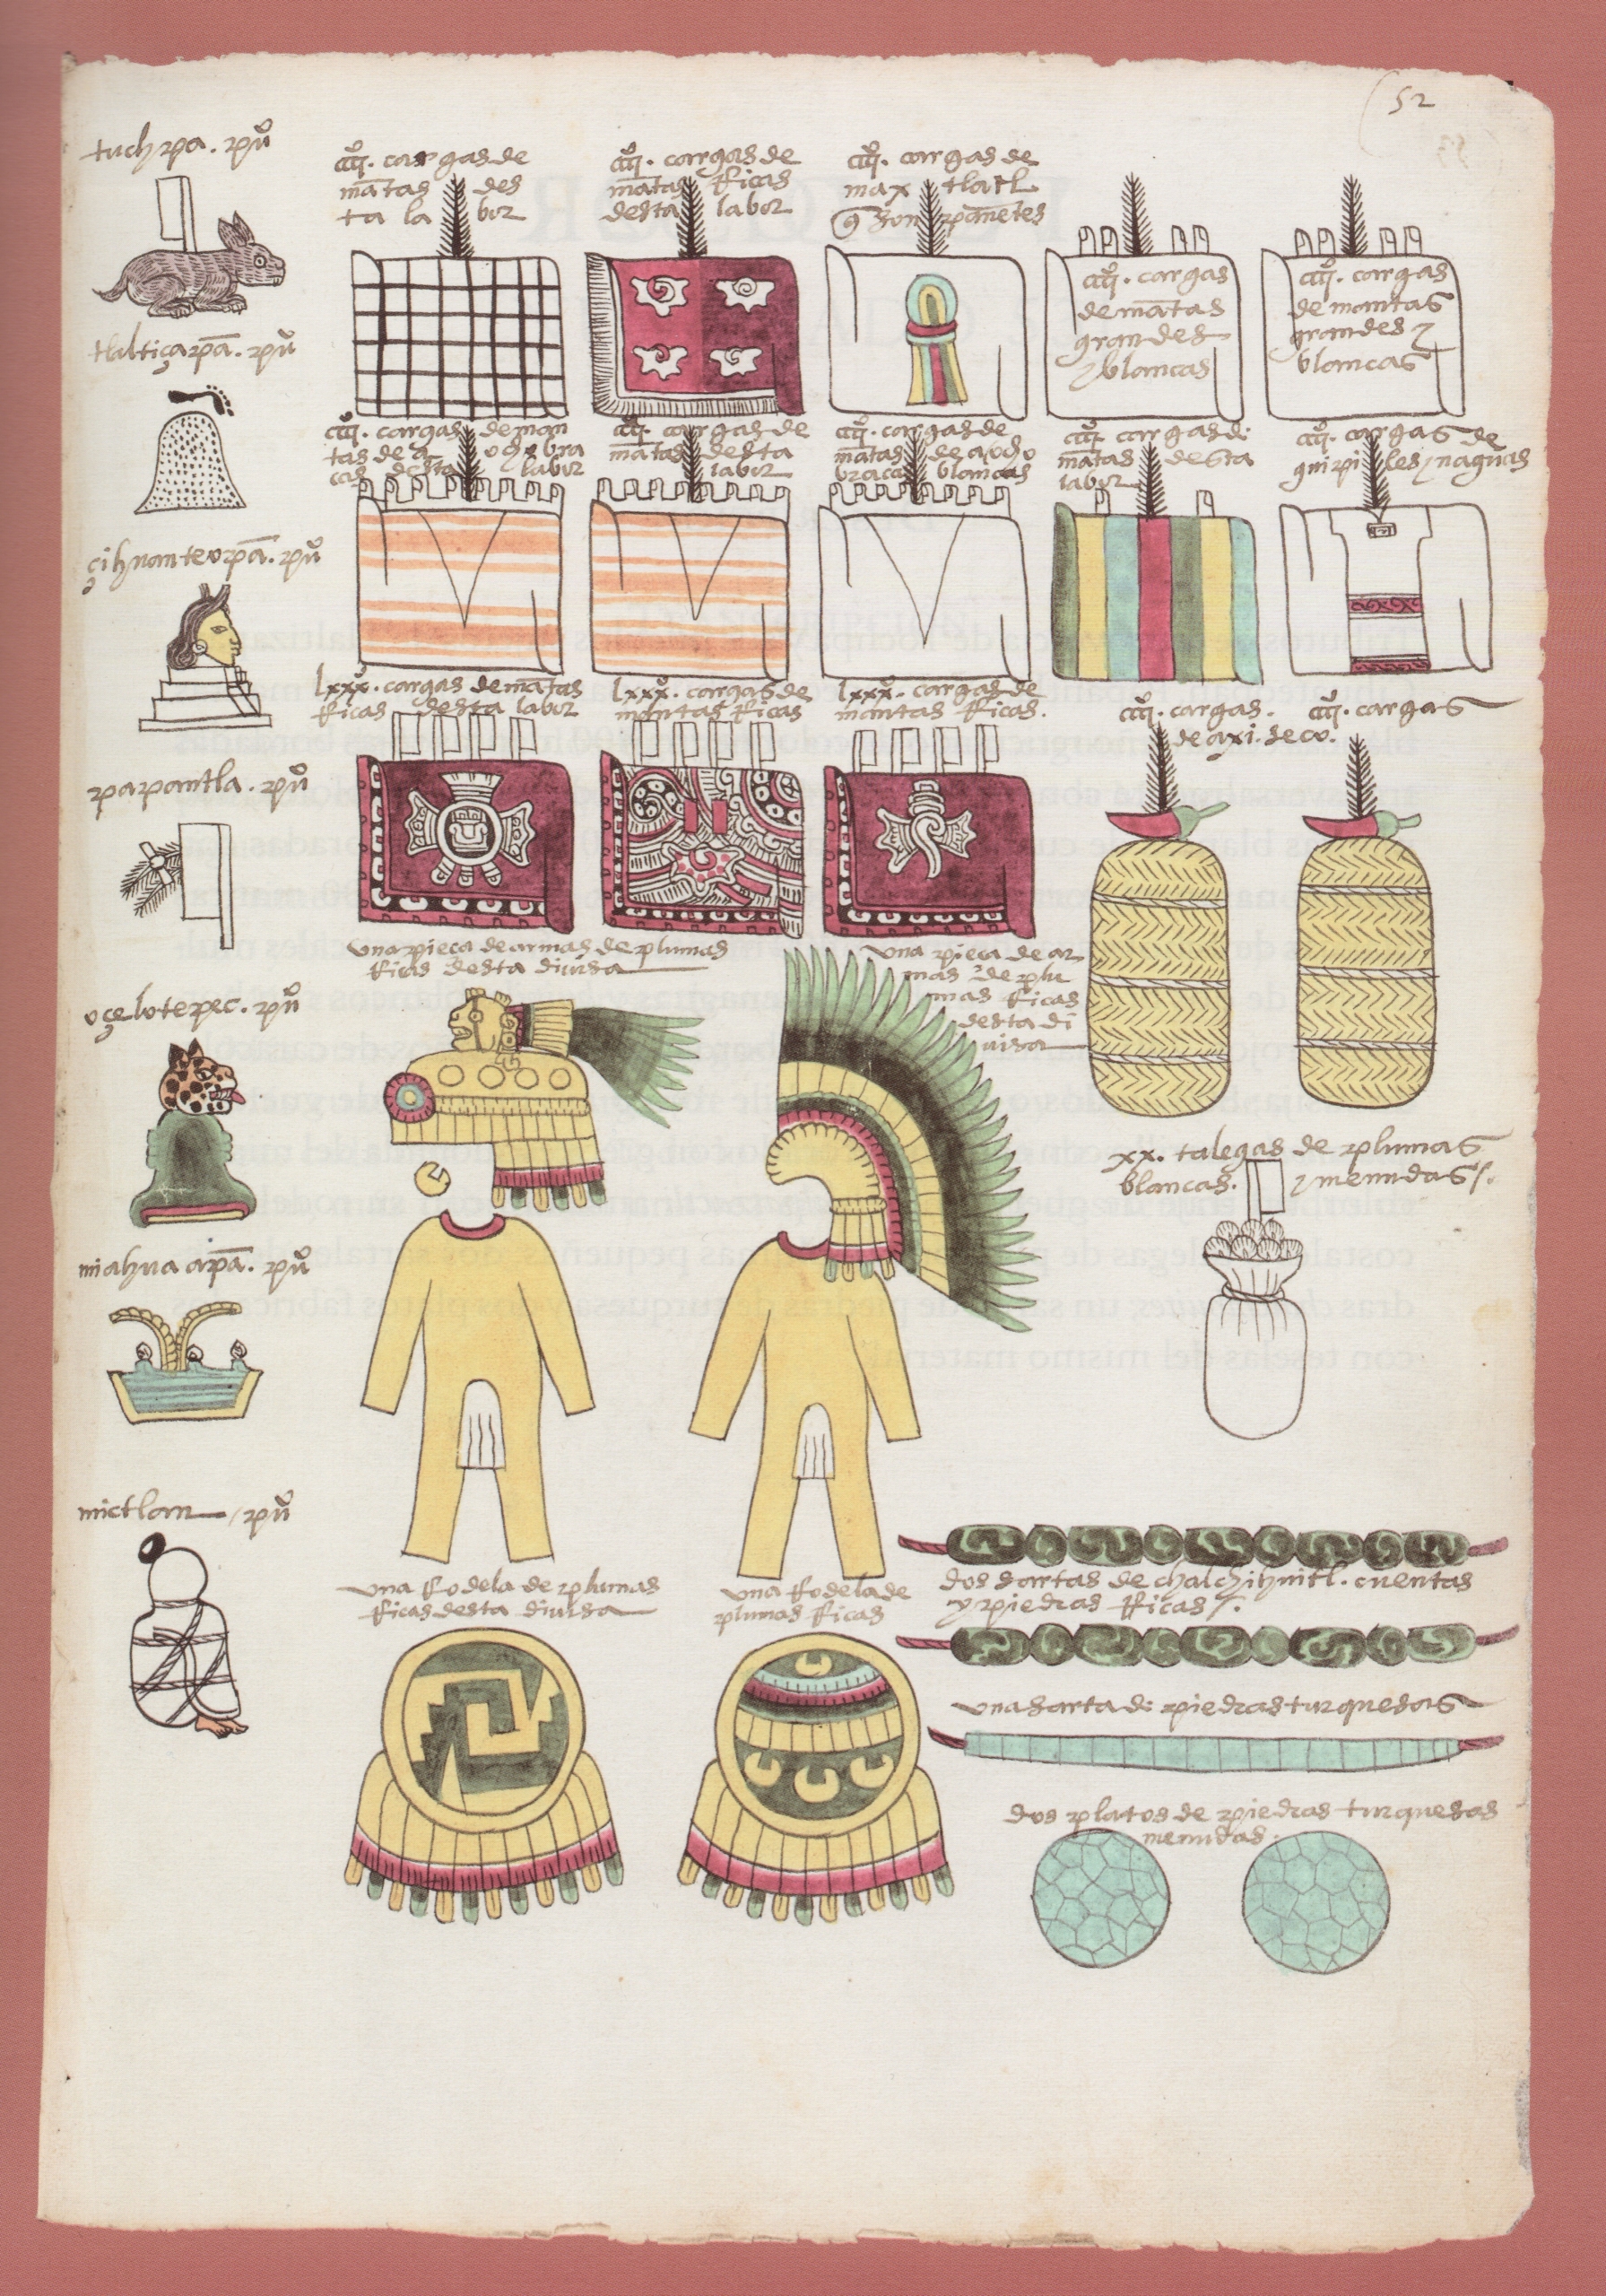 52
tuchpa. puº
tlaltiçapā. puº
çihuanteopā. puº
papantla. puº
oçelotepec. puº
miahua apā. puº
mictlan puº
cccc. cargas de
mātas des
ta labor
cccc. cargas de
mātas ricas
desta labor
cccc. cargas de
maxtlatl
q̄ son pāñetes
cccc. cargas
de mātas
grandes
blancas
cccc. cargas
de mantas
grandes
blancas
cccc. cargas de man
tas de a ocho bra
cas desta labor
cccc. cargas de
mātas desta
labor
cccc. cargas de
mātas de a ocho
bracas blancas
cccc. cargas de
mātas desta
labor
cccc. cargas de
guipiles y naguas
lxxx. cargas de mātas
ricas desta labor
lxxx. cargas de
mantas ricas
lxxx. cargas de
mantas ricas.
cccc. cargas. cccc. cargas
de axi. seco.
una pieça de armas de plumas
ricas desta diuisa
una pieça de ar
mas de plu
mas ricas
desta di
uisa
xx. talegas de plumas
blancas. menudas
una rodela de plumas
ricas desta diuisa
una rodela de
plumas ricas
dos sartas de chalchihuitl. cuentas
y piedras ricas
una sarta de piedras turquesas
dos platos de piedras turquesas
menudas.